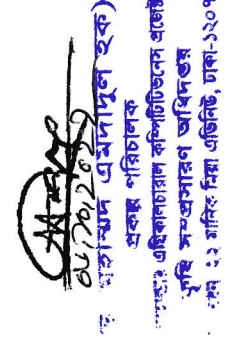 মোহাম্মদ এমদাদুল হক)
প্রকল্প পরিচালক
এগ্রিকালচারাল কম্পিটিটিভনেস প্রজেক্ট
কৃষি সম্প্রসারণ অধিদপ্তর
মানিক মিয়া এভিনিউ, ঢাকা-১২০৭